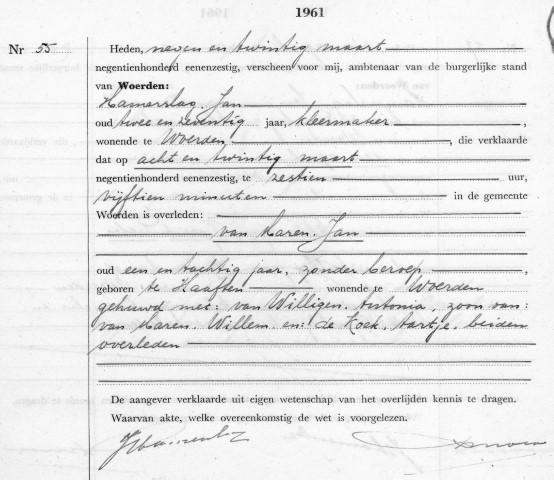 1961
Nr 55 Heden, negen en twintig maart
negentienhonderd eenenzestig, verscheen voor mij, ambtenaar van de burgerlijke stand
van Woerden:
Hamerslag, Jan
oud twee en zeventig jaar, kleermaker,
wonende te Woerden, die verklaarde
dat op acht en twintig maart
negentienhonderd eenenzestig, te zestien uur,
vijftien minuten in de gemeente
Woerden is overleden:
van Haren, Jan
oud een en tachtig jaar, zonder beroep,
geboren te Haaften wonende te Woerden
gehuwd met: van Willigen, Antonia, zoon van:
van Haren, Willem en: de Kock, Aartje, beiden
overleden
De aangever verklaarde uit eigen wetenschap van het overlijden kennis te dragen.
Waarvan akte, welke overeenkomstig de wet is voorgelezen.